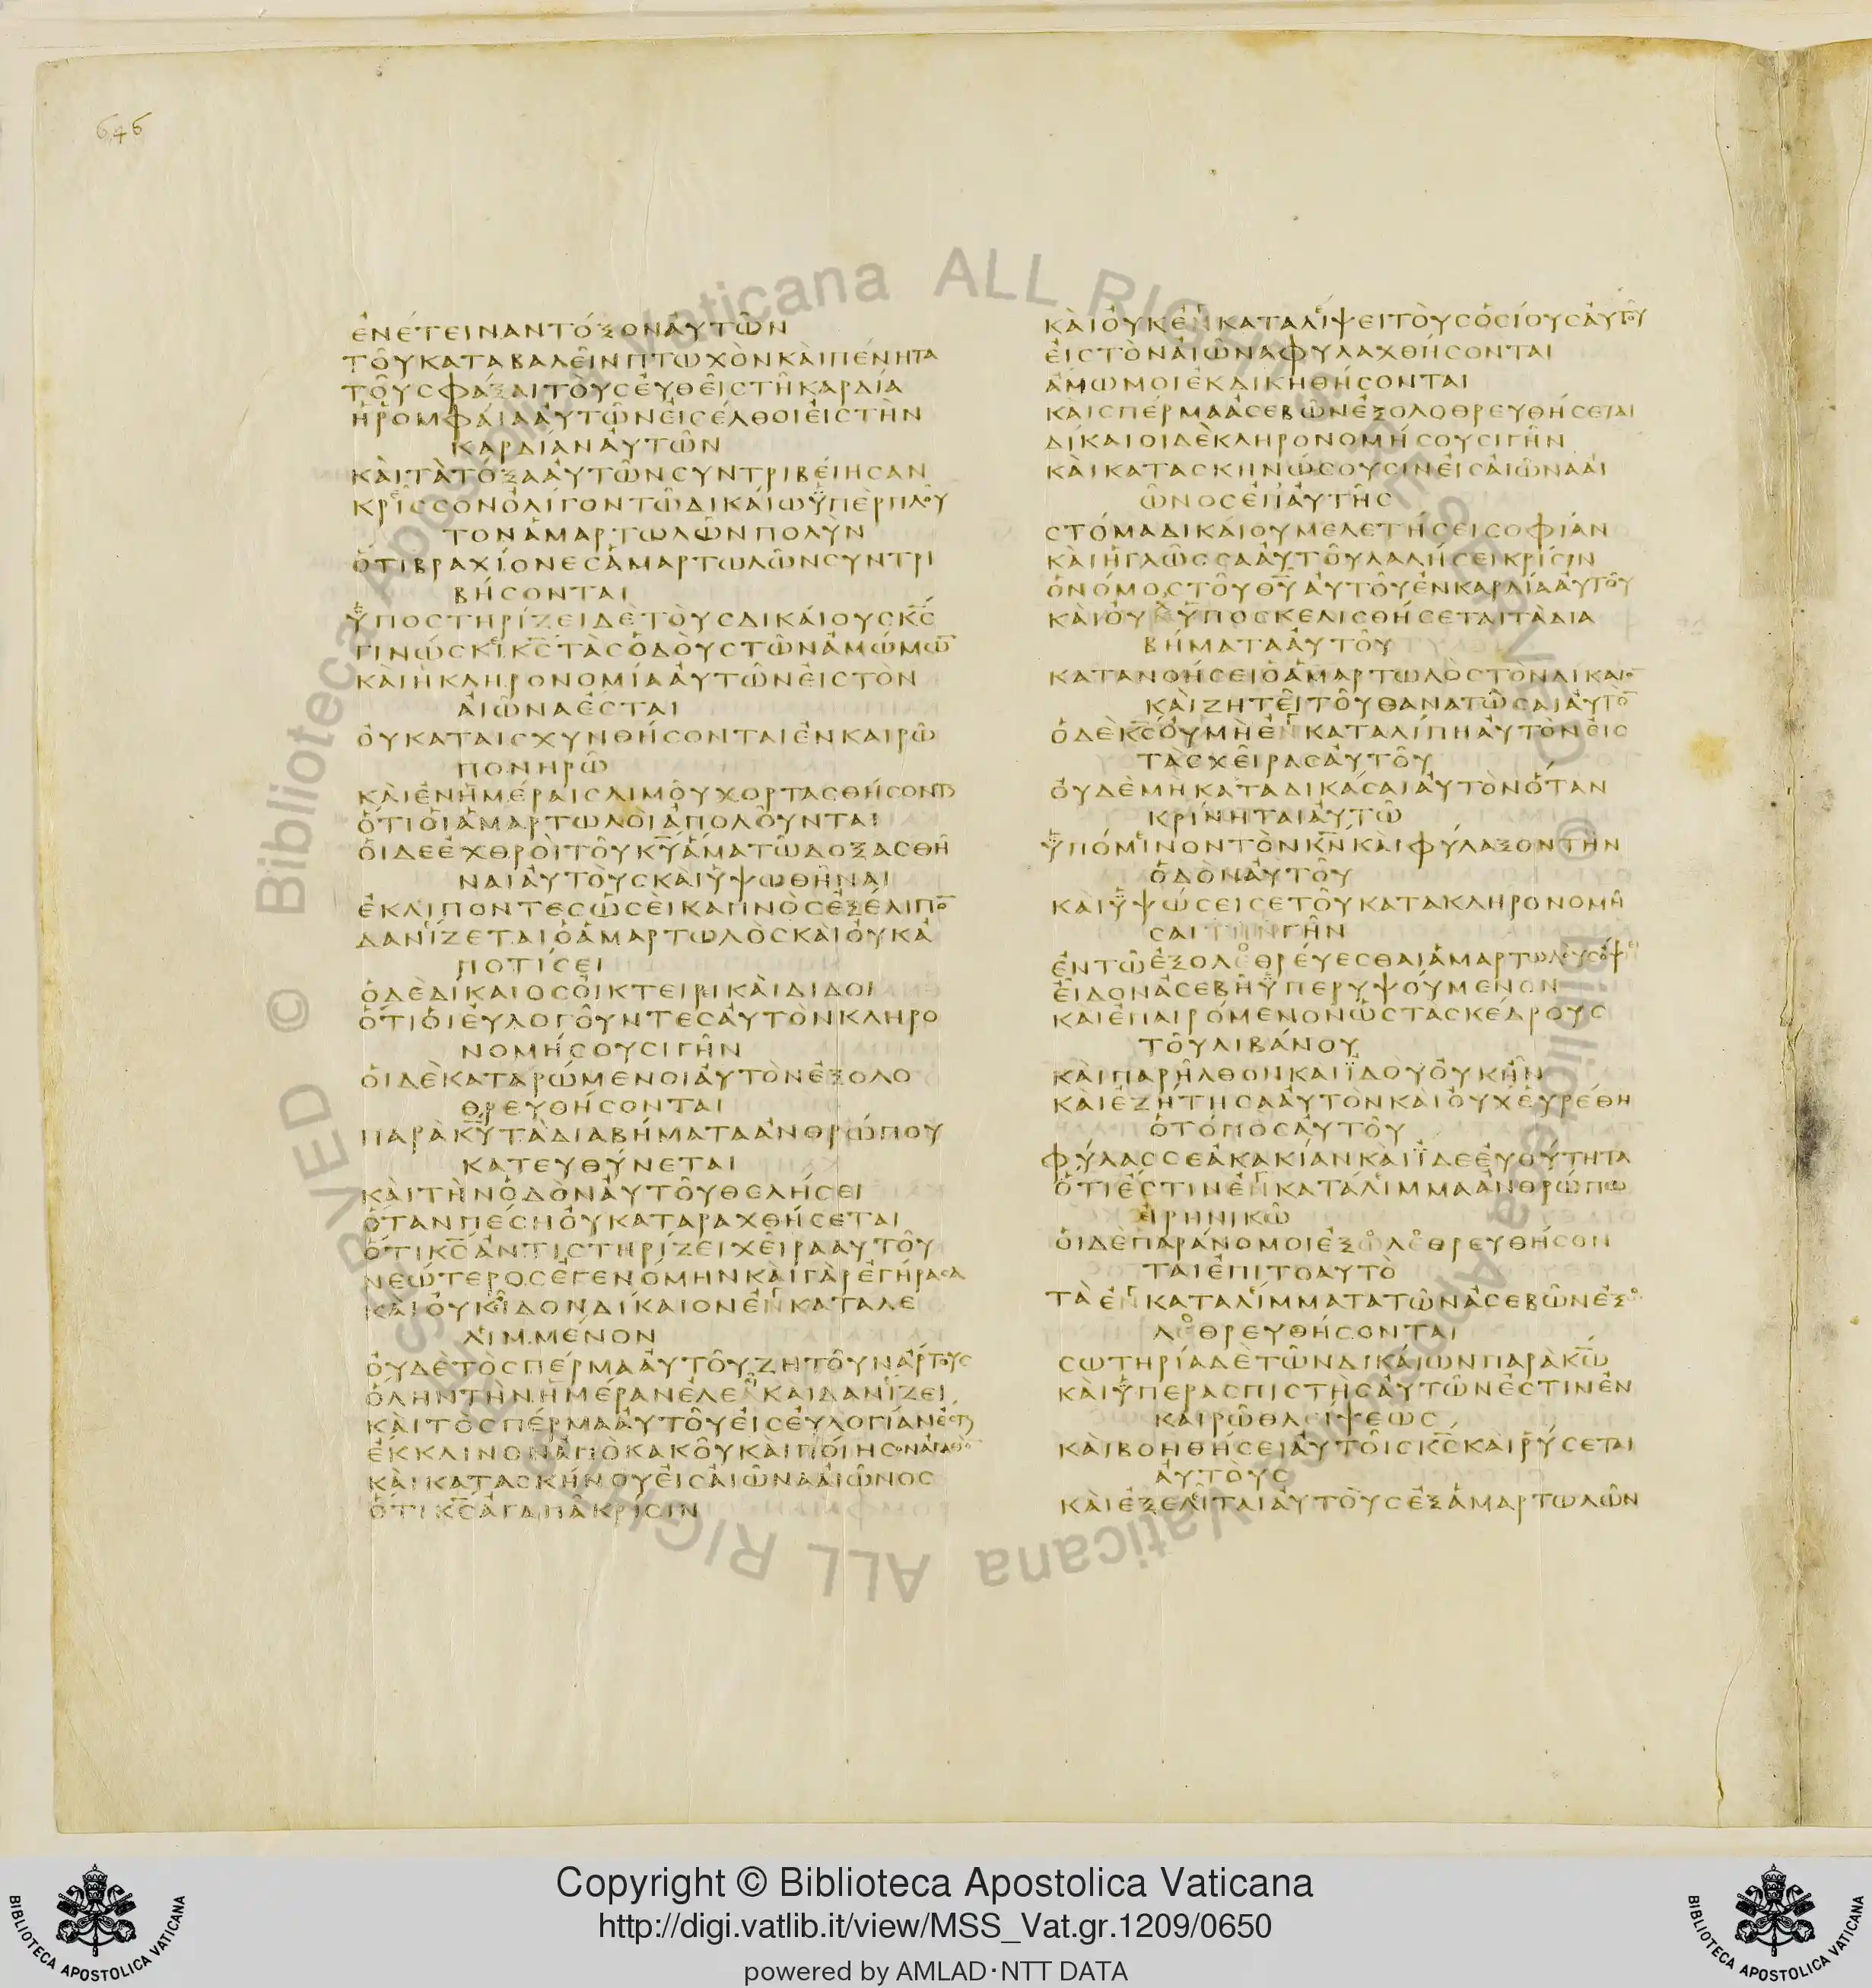 646
ἐνέτειναντόξοναὐτῶν
τοῦκαταβαλεῖνπτωχὸνκαὶπένητα
τοῦσφάξαιτοὺςεὐθεῖςτῇκαρδία
ἡρομφαίααὐτῶνεἰσέλθοιεἰςτὴν
καρδίαναὐτῶν
καὶτὰτόξααὐτῶνσυντριβείησαν
κρεῖσσονὀλίγοντῶδικαίωὑπὲρπλοῦ
τονἁμαρτωλῶνπολὺν
ὅτιβραχίονεςἁμαρτωλῶνσυντρι
βήσονται
ὑποστηρίζειδὲτοὺςδικάιουςκ̅ς̅
γινώσκικ̅ς̅τὰςὁδοὺςτῶνἀμώμω̅
καὶἡκληρονομίααὐτῶνεἰςτὸν
αἰῶναἔσται
οὐκαταισχυνθήσονταιἐνκαιρῶ
πονηρῶ
καὶἐνἡμέραιςλιμοῦχορτασθήσονται
ὅτιοἱἁμαρτωλοὶἀπολοῦνται
οἱδεἐχθροὶτοῦκ̅υ̅ἅματῶδοξασθῆ
ναιαὐτοὺςκαὶὑψωθῆναι
ἐκλίποντεςὡσεὶκαπνὸςἐξέλιπο̅
δανίζεταιὁἁμαρτωλὸςκαὶοὐκἀ
ποτίσει
ὁδὲδίκαιοςοἰκτειρικαὶδιδοι
ὅτιοἱεὐλογοῦντεςαὐτὸνκληρο
νομήσουσιγῆν
οἱδὲκαταρώμενοιαὐτὸνἐξολο
θρευθήσονται
παρὰκ̅υ̅τὰδιαβήματαἀνθρώπου
κατευθύνεται
καὶτὴνὁδὸναὐτοῦθελήσει
ὅτανπέσηοὐκαταραχθήσεται
ὅτικ̅ς̅ἀντιστηρίζειχεῖρααὐτοῦ
νεώτεροςἐγενόμηνκαὶγὰρἐγήρασα
καὶοὐκεἶδονδίκαιονἐνκαταλε
λιμμένον
οὐδὲτὸσπέρμααὐτοῦζητοῦνἄρτους
ὅληντὴνἡμέρανἐλεᾶκαὶδανίζει
καὶτὸσπέρμααὐτοῦεἰςεὐλογίανἔσται
ἔκκλινονἀπὸκακοῦκαὶποίησονἀγαθὸ̅
καὶκατασκήνουεἰςαἰῶνααἰῶνος
ὅτικ̅ς̅ἀγαπᾶκρίσιν
καὶοὐκἐνκαταλίψειτοὺςὁσίουςαὐτοῦ
εἰςτὸναἰῶναφυλαχθήσονται
ἄμωμοιἐκδικηθήσονται
καὶσπέρμαἀσεβῶνἐξολοθρευθήσεται
δίκαιοιδὲκληρονομήσουσιγῆν
καὶκατασκηνώσουσινεἰςαἰῶνααἰ
ῶνοςἐπαὐτῆς
στόμαδικαίουμελετήσεισοφίαν
καὶἡγλῶσσααὐτοῦλαλήσεικρίσιν
ὁνόμοςτοῦθ̅υ̅αὐτοῦἐνκαρδίααὐτοῦ
καὶοὐχὑποσκελισθήσεταιτὰδια
βήματααὐτοῦ
κατανοήσειὁἁμαρτωλὸςτὸνδίκαιο̅
καὶζητεῖτοῦθανατῶσαιαὐτὸ̅
ὁδὲκ̅ς̅οὐμὴἐνκαταλίπηαὐτὸνεἰς
τὰςχεῖραςαὐτοῦ
οὐδὲμὴκαταδικάσαιαὐτὸνὅταν
κρίνηταιαὐτῶ
ὑπόμινοντὸνκ̅ν̅καὶφύλαξοντὴν
ὁδὸναὐτοῦ
καὶὑψώσεισετοῦκατακληρονομῆ
σαιτὴνγῆν
ἐντῶἐξολοθρεύεσθαιἁμαρτωλοὺςὄψη
εἶδονἀσεβῆὑπερυψούμενον
καιἐπαιρόμενονὡςτὰςκέδρους
τοῦλιβάνου
καὶπαρῆλθονκαιἰδοὺοὐκἦν
καὶἐζήτησααὐτονκαὶοὐχεὑρέθη
ὁτόποςαὐτοῦ
φύλασσεἀκακίανκαὶἴδεεὐθύτητα
ὅτιἐστινἐνκατάλιμμαἀνθρώπω
εἰρηνικῶ
οἱδὲπαράνομοιἐξολεθρευθήσον
ταιἐπιτοαυτὸ
τὰἐνκαταλίμματατῶνἀσεβῶνἐξο
λοθρευθήσονται
σωτηρίαδὲτῶνδικαίωνπαρὰκ̅ω̅
καὶὑπερασπιστὴςαὐτῶνἐστινἐν
καιρῶθλίψεως
καὶβοηθήσειαὐτοῖςκ̅ς̅καὶῥύσεται
αὐτοὺς
καὶἐξελεῖταιαὐτοὺςἐξἁμαρτωλῶν
Copyright © Biblioteca Apostolica Vaticana
http://digi.vatlib.it/view/MSS_Vat.gr.1209/0650
powered by AMLAD·NTT DATA
BIBLIOTECA APOSTOLICA VATICANA
BIBLIOTECA APOSTOLICA VATICANA